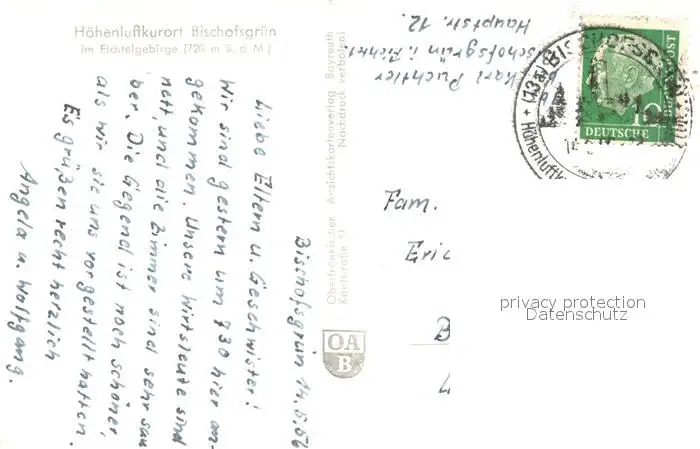 Höhenluftkurort Bischofsgrün
im Fichtelgebirge (720 m ü. d. M.)
Bischofsgrün 14.5.56
Liebe Eltern u. Geschwister!
Wir sind gestern um 730 hier an-
gekommen. Unsere Wirtsleute sind
nett, und die Zimmer sind sehr sau
ber. Die Gegend ist noch schöner,
als wir sie uns vorgestellt hatten.
Es grüßen recht herzlich
Angela u. Wolfgang.
Oberfränkischer Ansichtskartenverlag Bayreuth
Kantstraße Nachdruck verboten!
OA
B
Karl Puchtler
Bischofsgrün i. Fichtel
Hauptstr. 12.
(13a) BISCHOFSGRÜN
Höhenluftk
10
DEUTSCHE
BUNDESPOST
Fam.
Eric
B
privacy protection
Datenschutz